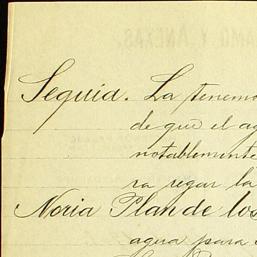 Sequia. La tenemo
de que el ag
notablemente
ra regar la
Noria Plan de los
agua para